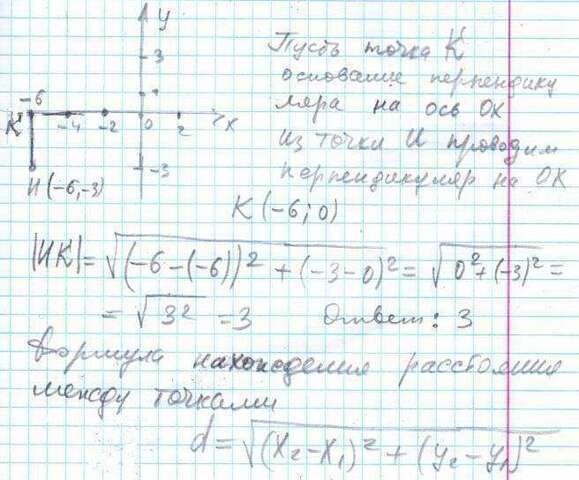 y
3
-6
-4 -2 0 2 x
K
-3
И (-6,-3)
Пусть точка K
основание перпендику
ляра на ось OX
Из точки И проводим
перпендикуляр на OX
K (-6; 0)
|ИK| = √((-6-(-6))² + (-3-0)²) = √(0²+(-3)²) =
= √3² = 3 Ответ: 3
Формула нахождения расстояния
между точками
d = √((x₂-x₁)² + (y₂-y₁)²)